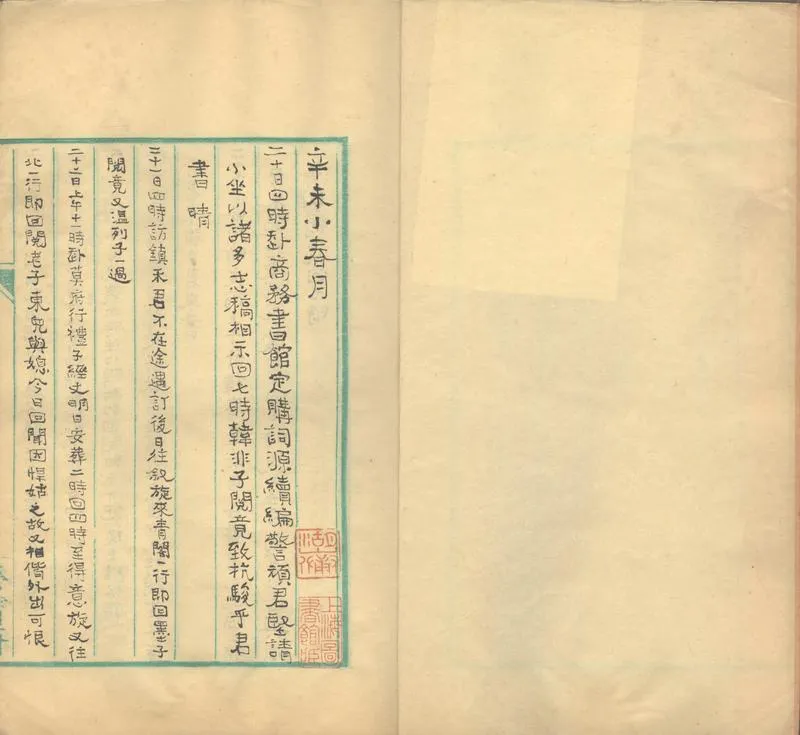 辛未小春月
二十日四時赴商務書館定購詞源續編警頑君堅請
小坐以諸多志稿相示回七時韓非子閱竟致杭駿乎君
書晴
二十一日四時訪鎮禾君不在途遇訂後日往敘旋來青閣一行即回墨子
閱竟又溫列子一過
二十二日上午十一時赴莫府行禮子經丈明日安葬二時回四時至得意旋又往
北一行即回閱老子東兒與媳今日回聞因悍姑之故又相偕外出可恨
上海圖書館